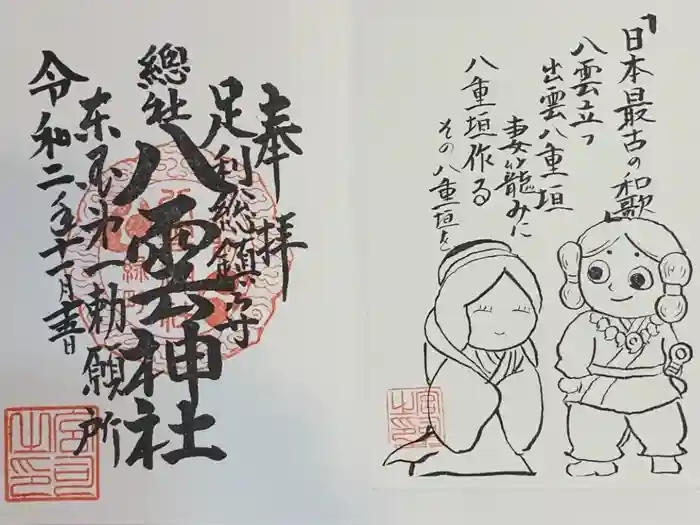 「日本最古の和歌」
八雲立つ
出雲八重垣
妻籠みに
八重垣作る
その八重垣を
奉拝
足利総鎮守
總社
八雲神社
東国第一勅願所
令和二年十一月吉日
宮司之印